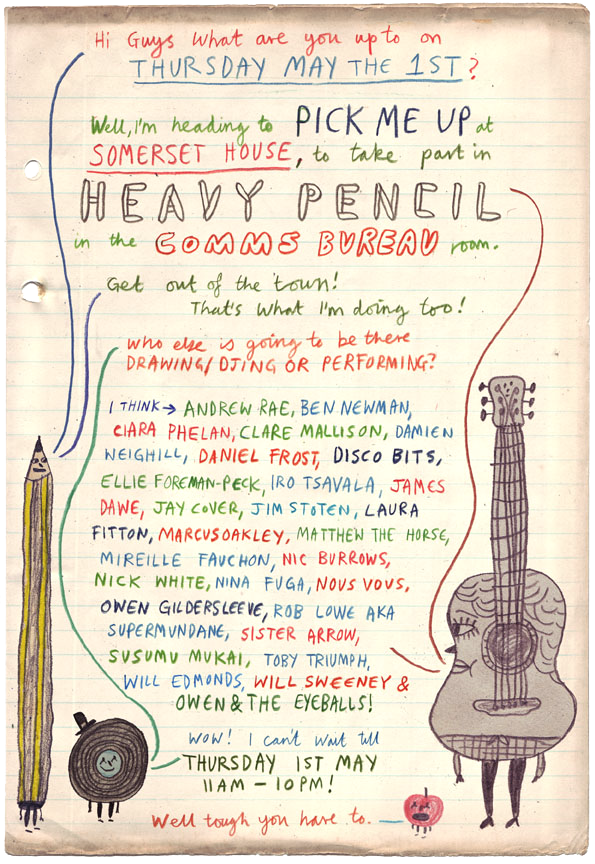 Hi Guys What are you up to on
THURSDAY MAY THE 1ST?
Well, I'm heading to PICK ME UP at
SOMERSET HOUSE, to take part in
HEAVY PENCIL
in the COMMS BUREAU room.
Get out of the town!
That's what I'm doing too!
who else is going to be there
DRAWING/DJING OR PERFORMING?
I THINK → ANDREW RAE, BEN NEWMAN,
CIARA PHELAN, CLARE MALLISON, DAMIEN
WEIGHILL, DANIEL FROST, DISCO BITS,
ELLIE FOREMAN-PECK, IRO TSAVALA, JAMES
DAWE, JAY COVER, JIM STOTEN, LAURA
FITTON, MARCUS OAKLEY, MATTHEW THE HORSE,
MIREILLE FAUCHON, NIC BURROWS,
NICK WHITE, NINA FUGA, NOUS VOUS,
OWEN GILDERSLEEVE, ROB LOWE AKA
SUPERMUNDANE, SISTER ARROW,
SUSUMU MUKAI, TOBY TRIUMPH,
WILL EDMONDS, WILL SWEENEY &
OWEN & THE EYEBALLS!
WOW! I can't wait till
THURSDAY 1ST MAY
11AM - 10PM!
Well tough you have to.